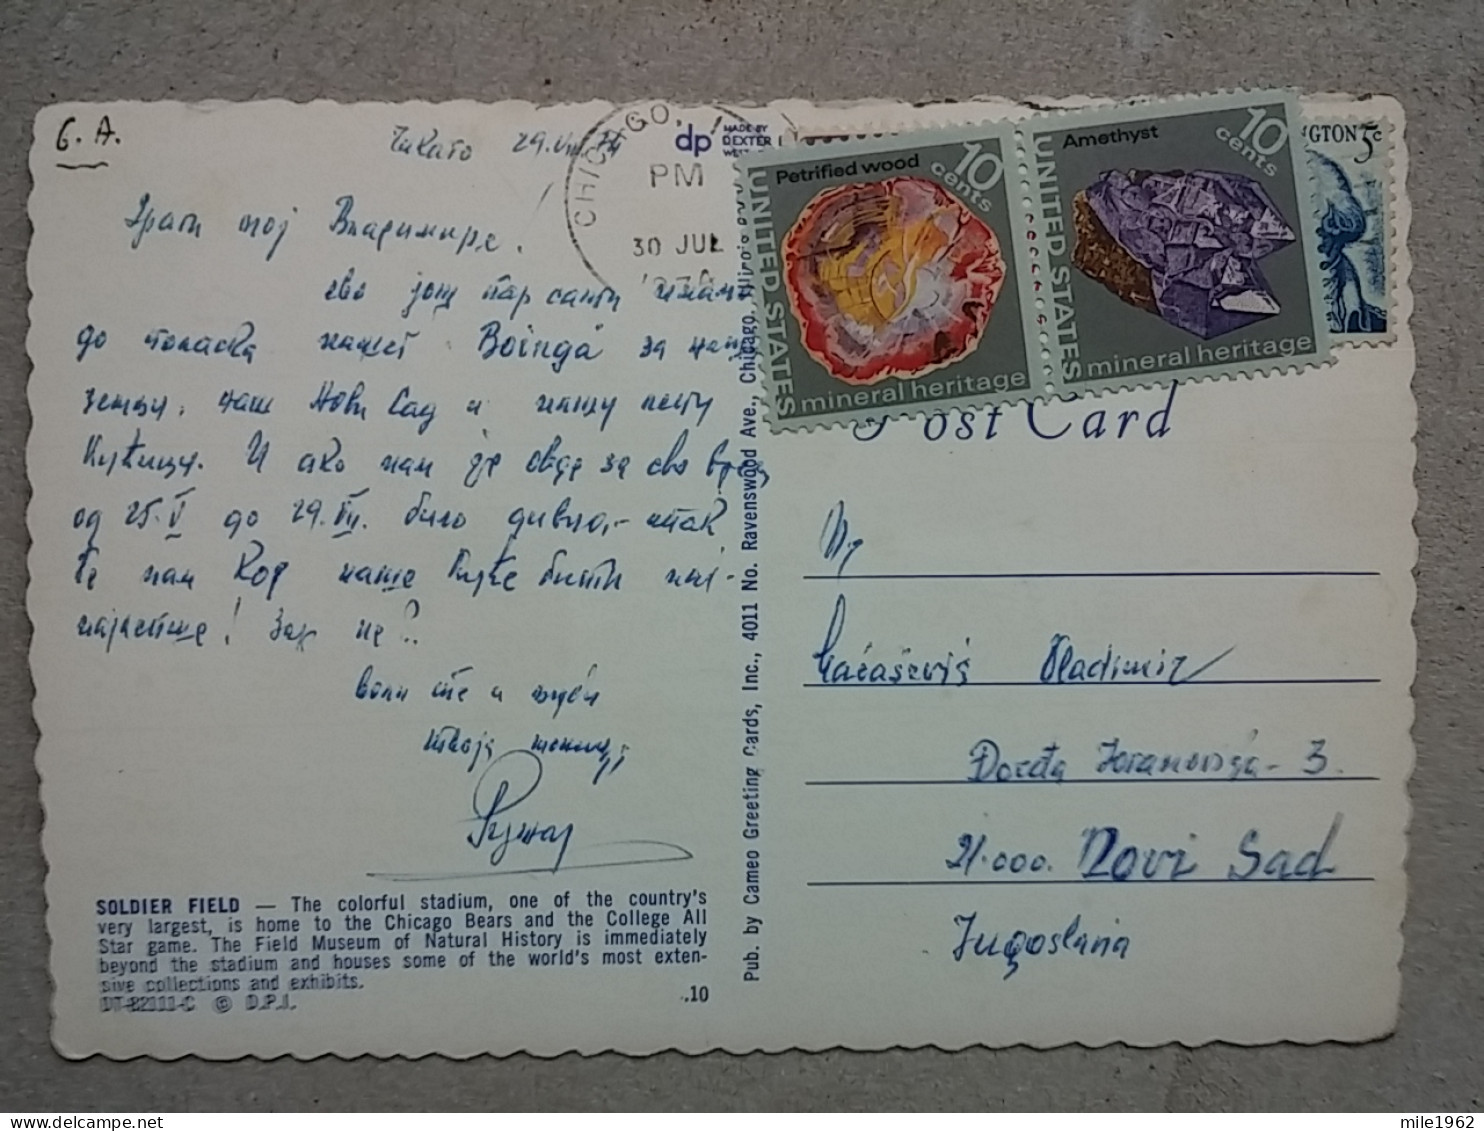 6. A.
Чикаго 29.VII 74
Драги мој Владимире,
ево још пар сати имамо
до поласка нашег "Boinga" за нашу
земљу, наш Нови Сад и нашу лепу
кућицу. И ако нам је овде за ово време
од 25.V до 29.VII. било дивно, ипак
ће нам код наше куће бити нај-
лепше! Зар не?
воли те и љуби
твоја
SOLDIER FIELD — The colorful stadium, one of the country's
very largest, is home to the Chicago Bears and the College All
Star game. The Field Museum of Natural History is immediately
beyond the stadium and houses some of the world's most exten-
sive collections and exhibits.
DT-82111-C © D.P.I.
.10
CHICAGO,
PM
30 JUL
dp MADE BY
DEXTER
Pub. by Cameo Greeting Cards, Inc., 4011 No. Ravenswood Ave., Chicago, Illinois
Petrified wood
10 cents
UNITED STATES
mineral heritage
Amethyst
10 cents
UNITED STATES
mineral heritage
NGTON 5c
Post Card
Vladimir
3.
21.000. Novi Sad
Jugoslavia
mile1962